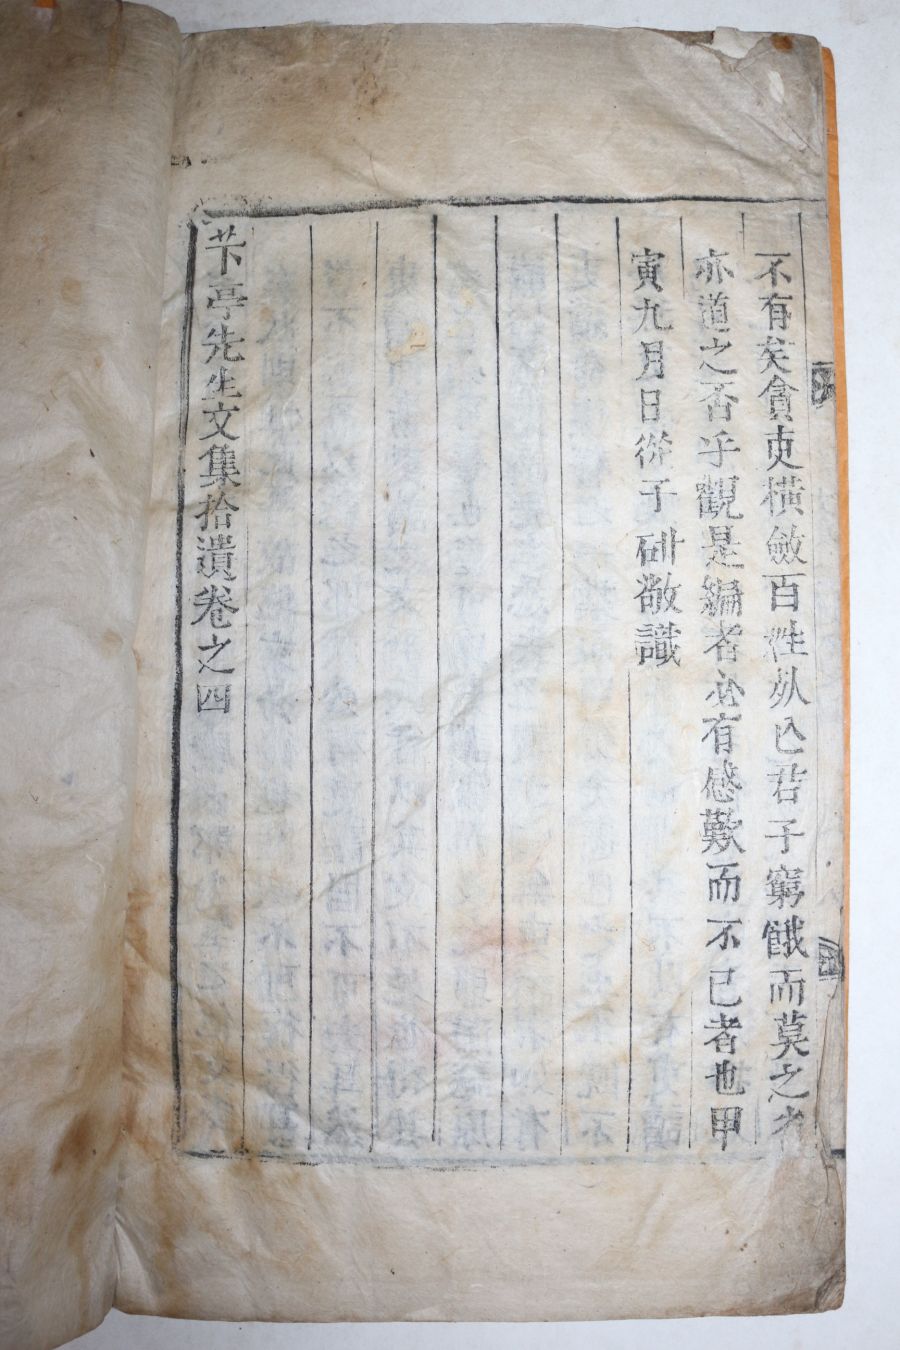 不有矣貪吏橫斂百姓从亡君子窮餓而莫之者
亦道之否乎觀是編者必有感歎而不已者也甲
寅九月日從子硏敬識
芐亭先生文集拾遺卷之四